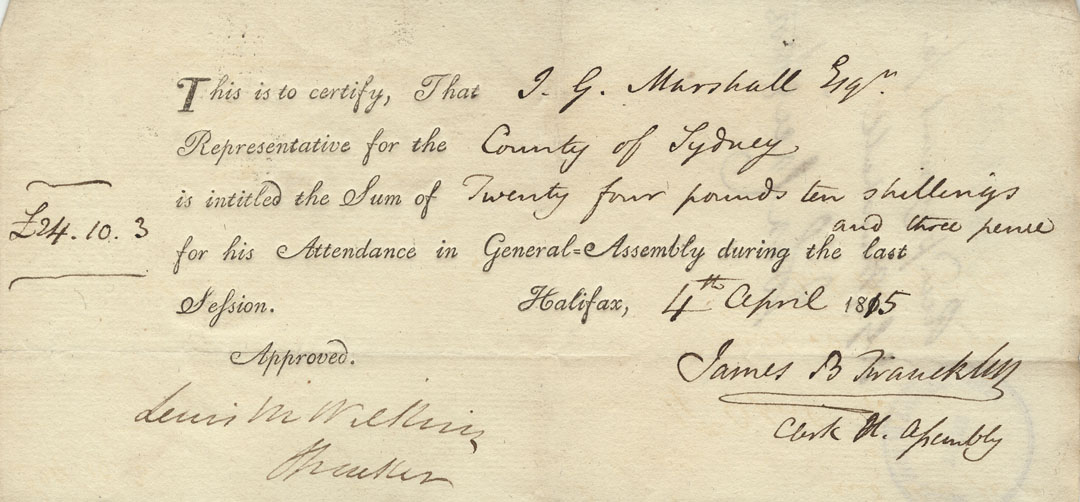 This is to certify, That J. G. Marshall Esqr.
Representative for the County of Sydney
is intitled the Sum of Twenty four pounds ten shillings
and three pence
£24.10.3
for his Attendance in General=Assembly during the last
Session. Halifax, 4th April 1815
Approved.
James B Franckliin
Lewis M Wilkins
Speaker
Clerk H. Assembly